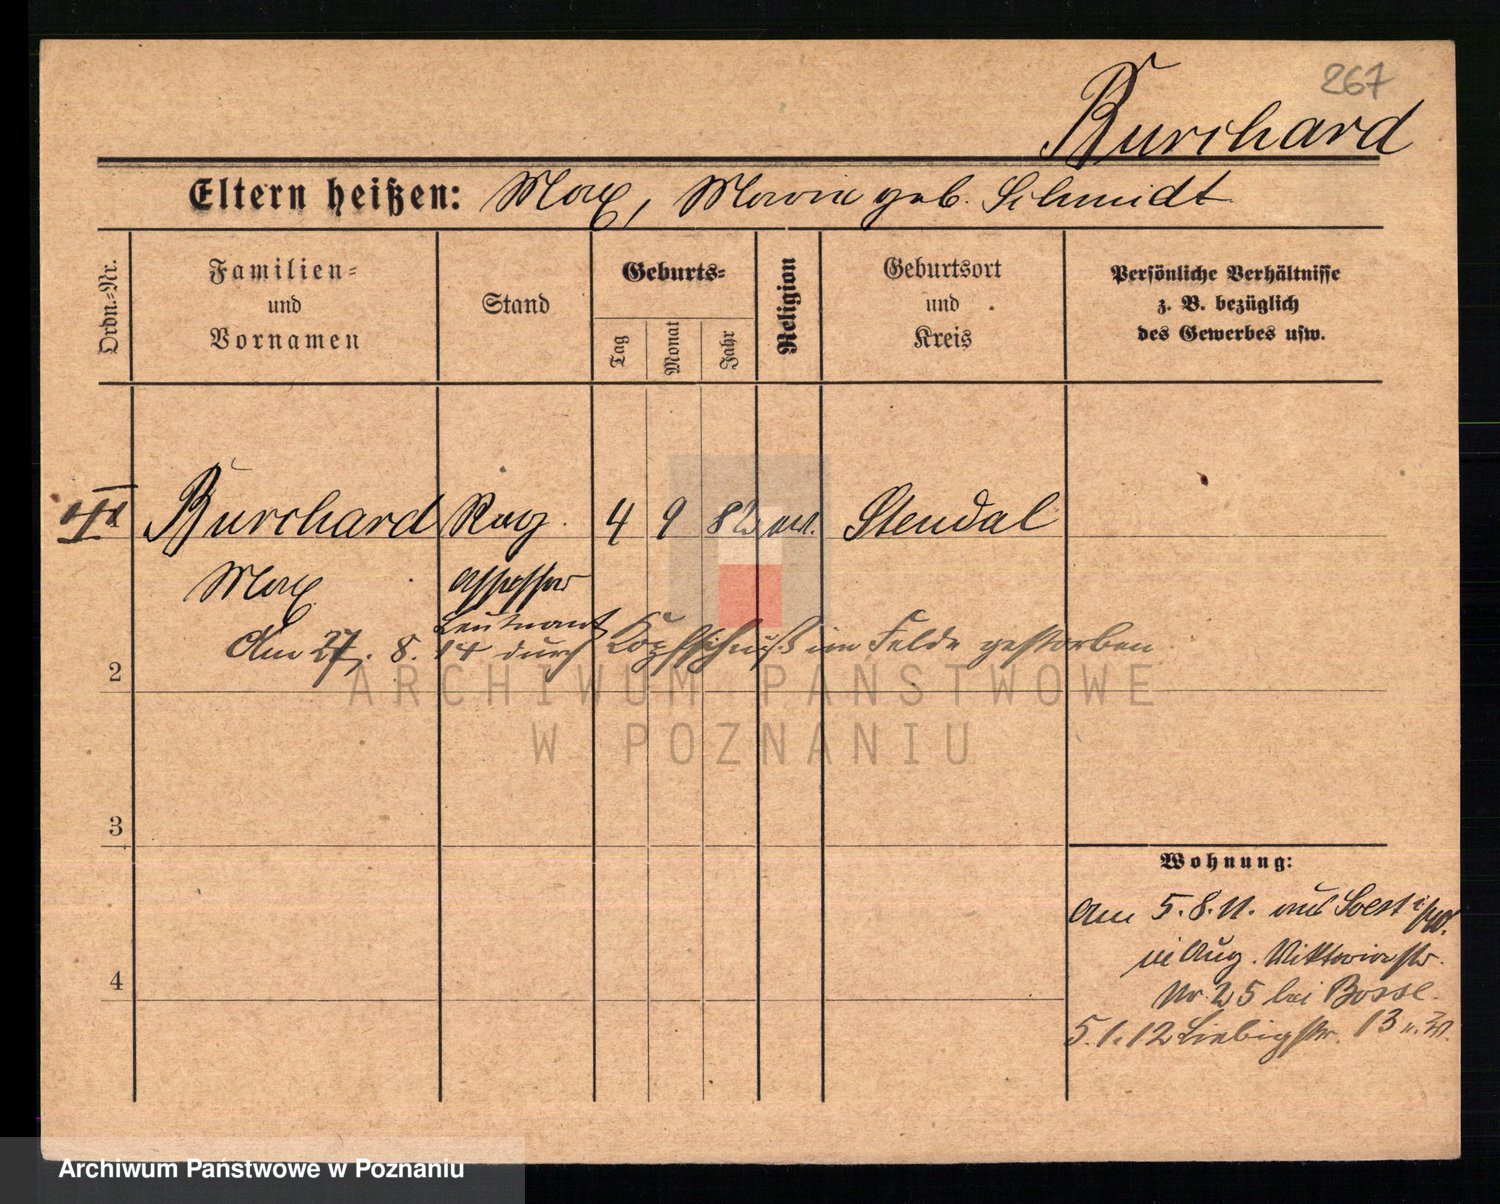 267
Burchard
Eltern heißen: Max, Maria geb. Schmidt
Ordn.-Nr.
Familien-
und
Vornamen
Stand
Geburts-
Tag
Monat
Jahr
Religion
Geburtsort
und
Kreis
Persönliche Verhältnisse
z. B. bezüglich
des Gewerbes usw.
Burchard Reg. 4 9 82 Stendal
Max assessor
Leutnant
Am 27. 8. 14 durch Kopfschuß im Felde gestorben
2
ARCHIWUM PAŃSTWOWE
W POZNANIU
3
Wohnung:
Am 5.8.11. aus Soest
Aug. Viktoriastr.
4
Nr. 25 bei Bosse.
5.1.12 Liebigstr. 13
Archiwum Państwowe w Poznaniu